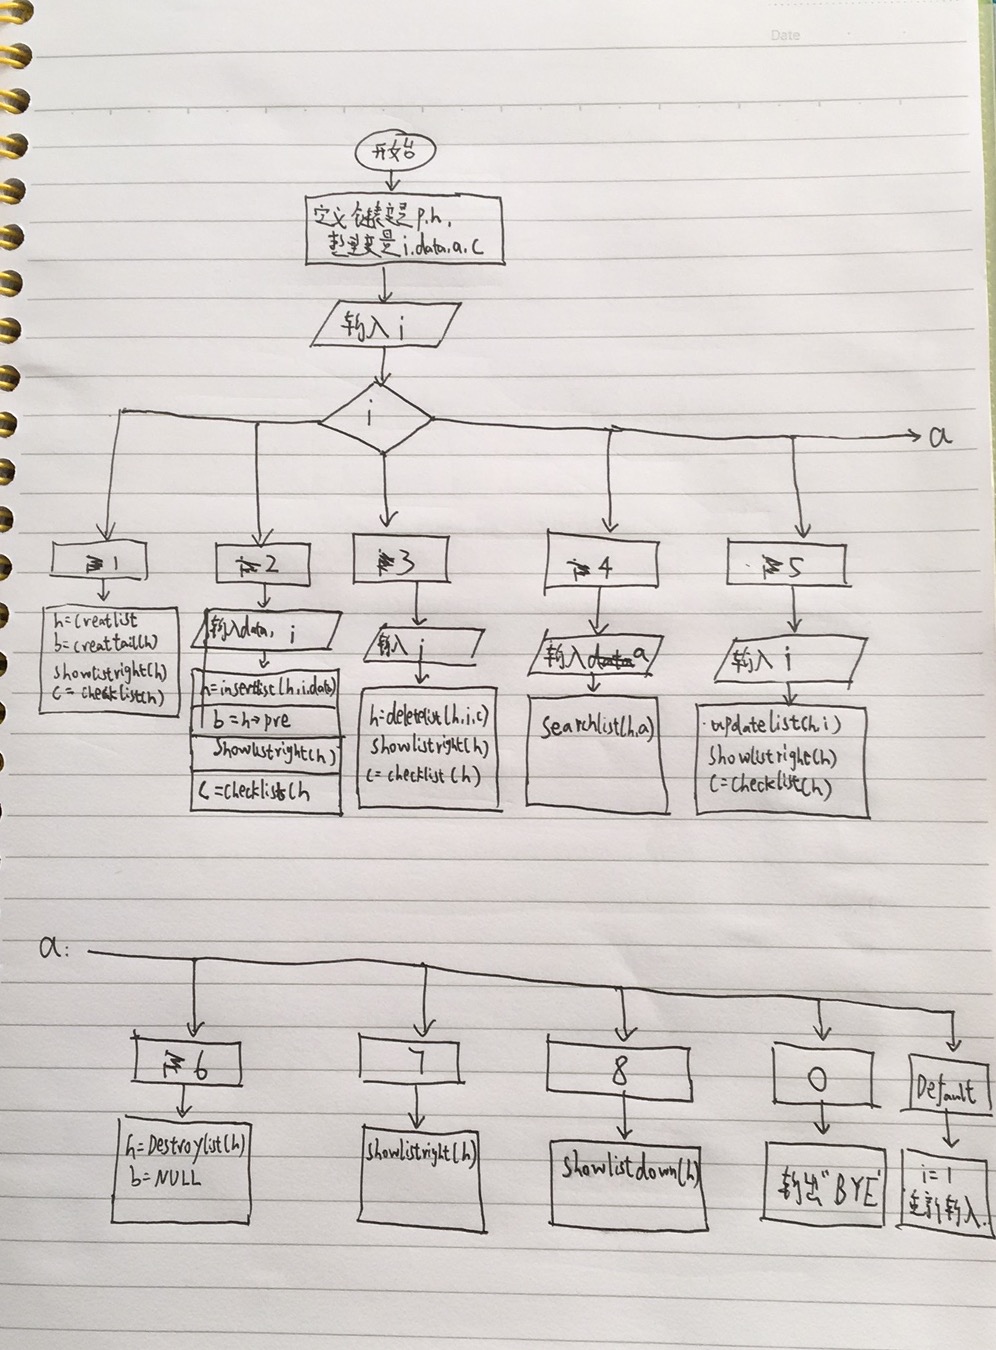 Date
开始
定义链表变量 p.h,
整型变量 i.data.a.c
输入 i
i
a
1
2
3
4
5
h=creatlist
b=creattail(h)
showlistright(h)
c=checklist(h)
输入data, i
h=insertlist(h,i,data)
b=h→pre
showlistright(h)
c=checklist(h
输入 i
h=deletelist(h,i,c)
showlistright(h)
c=checklist(h)
输入 a
searchlist(h,a)
输入 i
updatelist(h,i)
showlistright(h)
c=checklist(h)
a:
6
7
8
0
Default
h=Destroylist(h)
b=NULL
showlistright(h)
showlistdown(h)
输出"BYE"
i=1
重新输入.